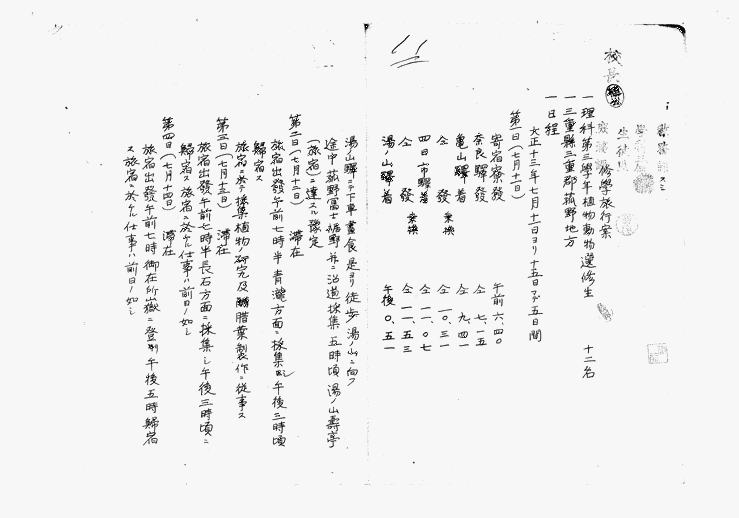 校長
修學旅行案
一 理科第三學年植物動物選修生 十二名
一 三重縣三重郡菰野地方
一 日程
大正十三年七月十一日ヨリ十五日マデ五日間
第一日(七月十一日)
寄宿寮發 午前六、四〇
奈良驛發 仝 七、一五
亀山驛着 仝 九、四一
仝 發 乗換 仝 一〇、三一
四日市驛着 仝 一一、〇七
仝 發 乗換 仝 一一、五三
湯ノ山驛着 午後〇、五一
湯ノ山驛ニテ下車晝食是ヨリ徒歩湯ノ山ニ向フ
途中菰野富士裾野並ニ沿道採集五時頃湯ノ山壽亭
(旅宿)ニ達スル豫定
第二日(七月十二日) 滞在
旅宿出發午前七時半青瀧方面ニ採集シ午後三時頃
歸宿ス
旅宿ニ於テ採集植物ノ研究及腊葉製作ニ從事ス
第三日(七月十三日) 滞在
旅宿出發午前七時半長石方面ニ採集シ午後三時頃ニ
歸宿ス旅宿ニ於ケル仕事ハ前日ノ如シ
第四日(七月十四日) 滞在
旅宿出發午前七時御在所嶽ニ登リ午後五時歸宿
ス旅宿ニ於ケル仕事ハ前日ノ如シ